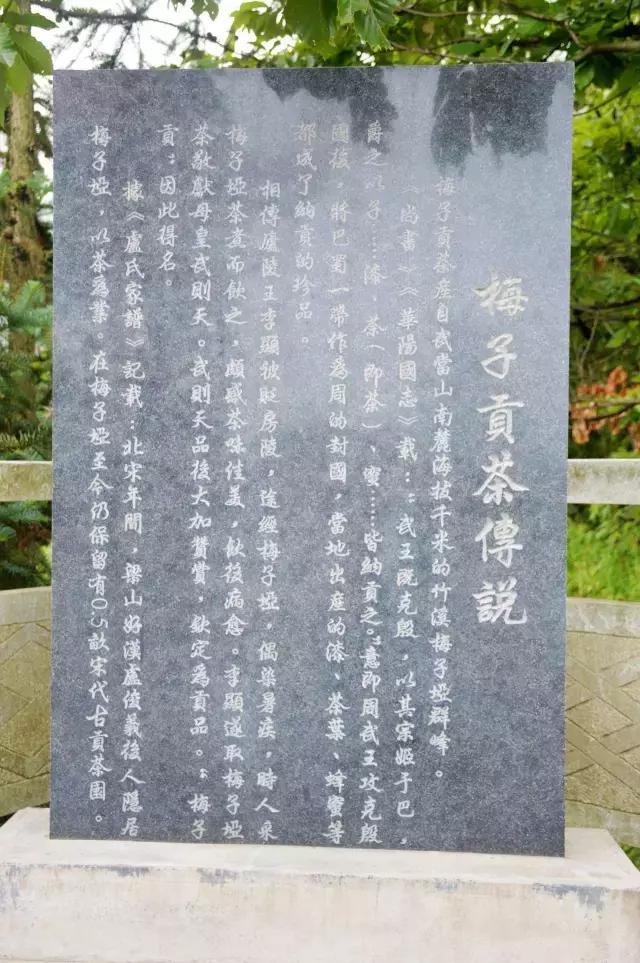 梅子貢茶傳説
梅子貢茶產自武當山南麓海拔千米的竹溪梅子埡群峰。
《尚書》《華陽國志》載：“武王既克殷，以其宗姬于巴，
爵之以子……漆、茶（即茶）、蜜……皆納貢之。”意即周武王攻克殷
國後，將巴蜀一帶作爲周的封國，當地出產的漆、茶葉、蜂蜜等
都成了納貢的珍品。
相傳廬陵王李顯被貶房陵，途經梅子埡，偶染暑疾，時人采
梅子埡茶煮而飲之，頗感茶味佳美，飲後病愈。李顯遂取梅子埡
茶敬獻母皇武則天。武則天品後大加贊賞，欽定爲貢品。“梅子
貢”因此得名。
據《盧氏家譜》記載：北宋年間，梁山好漢盧俊義後人隱居
梅子埡，以茶爲業。在梅子埡至今仍保留有0.5畝宋代古貢茶園。